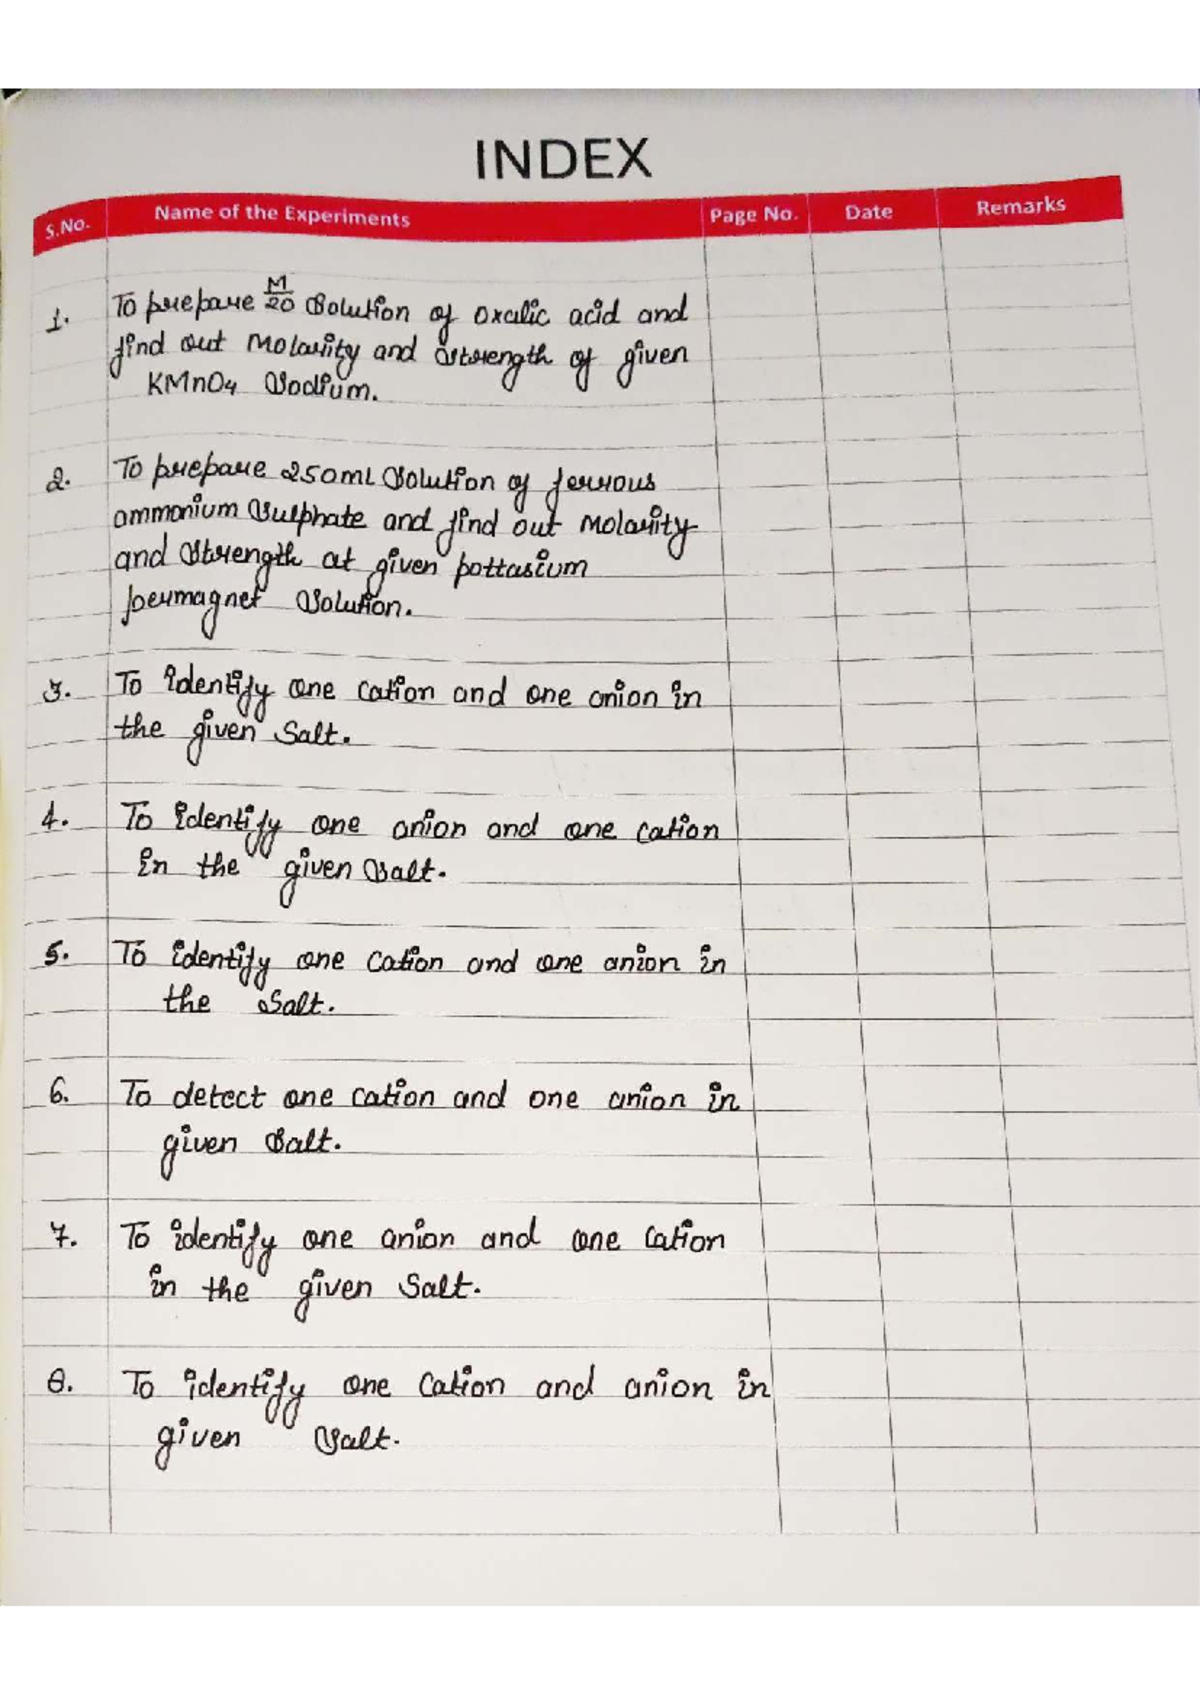 INDEX
S.No. Name of the Experiments Page No. Date Remarks
1. To prepare M/20 Solution of oxalic acid and
find out Molarity and Strength of given
KMnO4 Sodium.
2. To prepare 250mL Solution of ferrous
ammonium Sulphate and find out Molarity
and Strength at given pottasium
permagnet Solution.
3. To identify one cation and one anion in
the given Salt.
4. To identify one anion and one cation
in the given Salt.
5. To identify one cation and one anion in
the Salt.
6. To detect one cation and one anion in
given Salt.
7. To identify one anion and one cation
in the given Salt.
8. To identify one cation and anion in
given Salt.